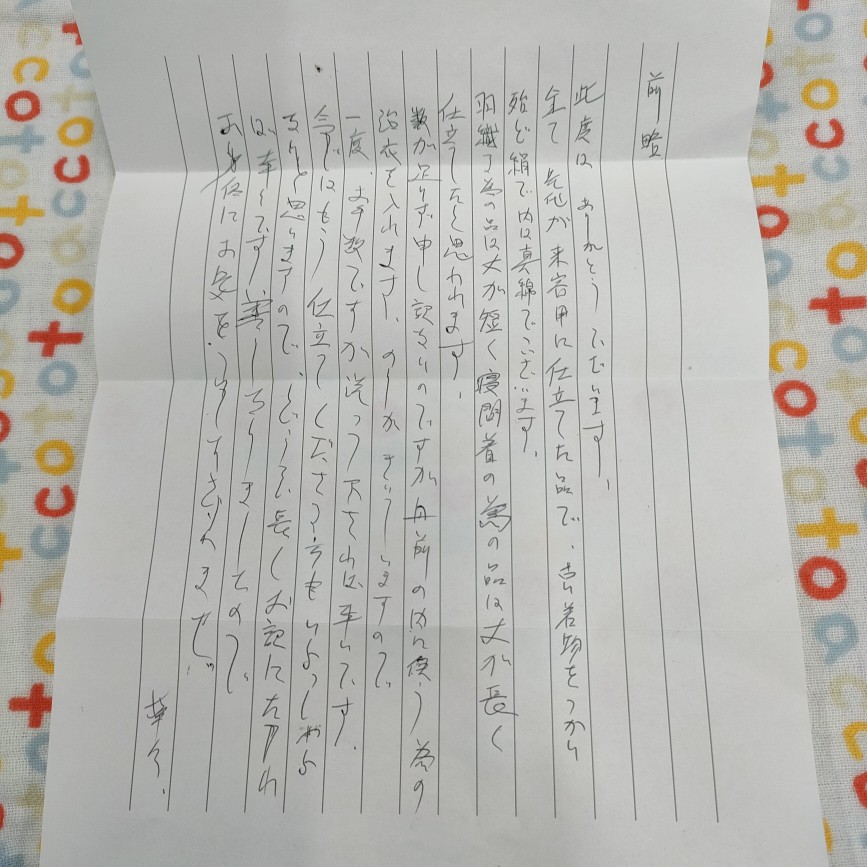 前略
此度は ありがとうございます、
全て 先代が 来客用に仕立てた品で、古い着物をつかい
殆ど絹で内は真綿でございます、
羽織る為の品は丈が短く寝間着の為の品は丈が長く
仕立てしたと思われます、
数が足りず申し訳ないのですが丹前の内に使う為の
浴衣を入れます、のりが きいていますので
一度、お手数ですが洗って下されば幸いです、
今ではもう 仕立てしくださる方もいらっしゃら
ないと思いますので、どうぞ長くお召しになられ
ば、幸いです、寒くなりましたので
お身体にお気をつけて下さいませ、
草々、